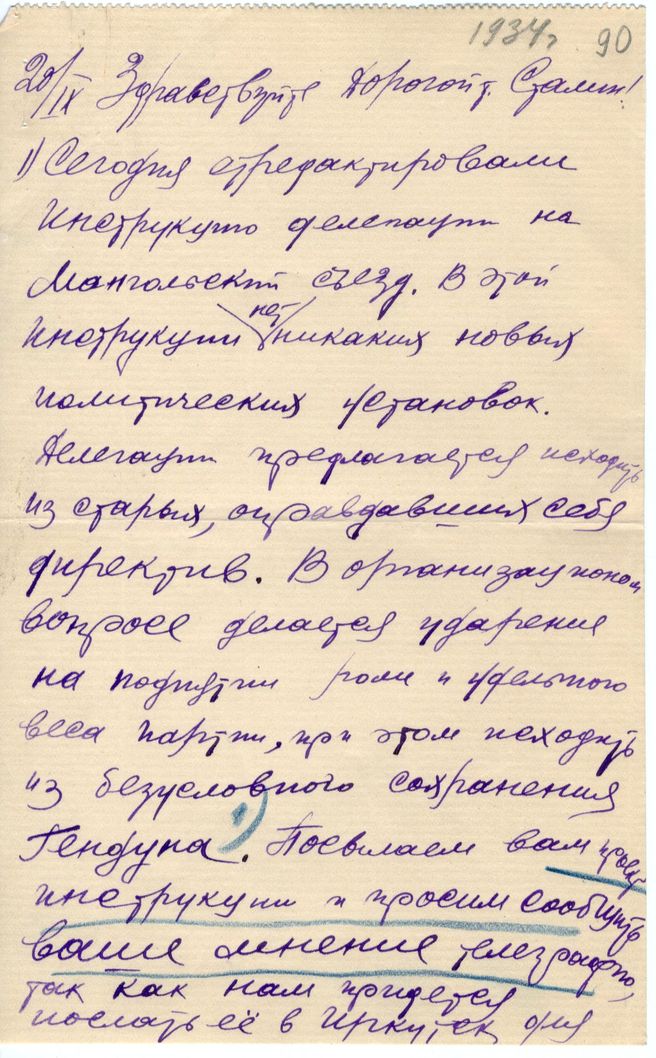 1934г 90
20/IX Здравствуйте Дорогой т. Сталин!
1) Сегодня отредактировали
Инструкцию делегации на
Мангольский съезд. В этой
Инструкции нет никаких новых
политических установок.
Делегации предлагается исходить
из старых, оправдавших себя
директив. В организационном
вопросе делается ударения
на поднятии роли и удельного
веса партии, при этом исходить
из безусловного сохранения
Гендуна. Посылаем вам проект
инструкции и просим сообщить
ваше мнение телеграфно,
так как нам придется
послать её в Иркутск для